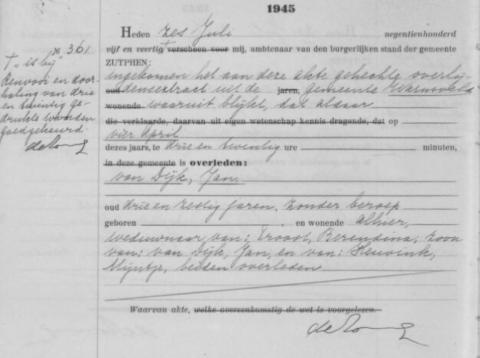 1945
No 361
Heden zes Juli negentienhonderd
vijf en veertig verscheen voor mij, ambtenaar van den burgerlijken stand der gemeente
ZUTPHEN:
ingekomen het aan deze akte gehechte overlij-
oud densextract uit de jaren, gemeente Warnsveld
wonende waaruit blijkt, dat aldaar
die verklaarde, daarvan uit eigen wetenschap kennis dragende, dat op
vier April
dezes jaars, te drie en twintig ure minuten,
in deze gemeente is overleden:
van Dijk, Jan
oud drie en zestig jaren, zonder beroep
geboren en wonende alhier,
weduwnaar van: Berendina, zoon
van: van Dijk, Jan, en van:
Mijntje, beiden overleden
Waarvan akte, welke overeenkomstig de wet is voorgelezen.
"is bij"
Renvooi en door-
haling van drie
en twintig ge-
drukte woorden
goedgekeurd.